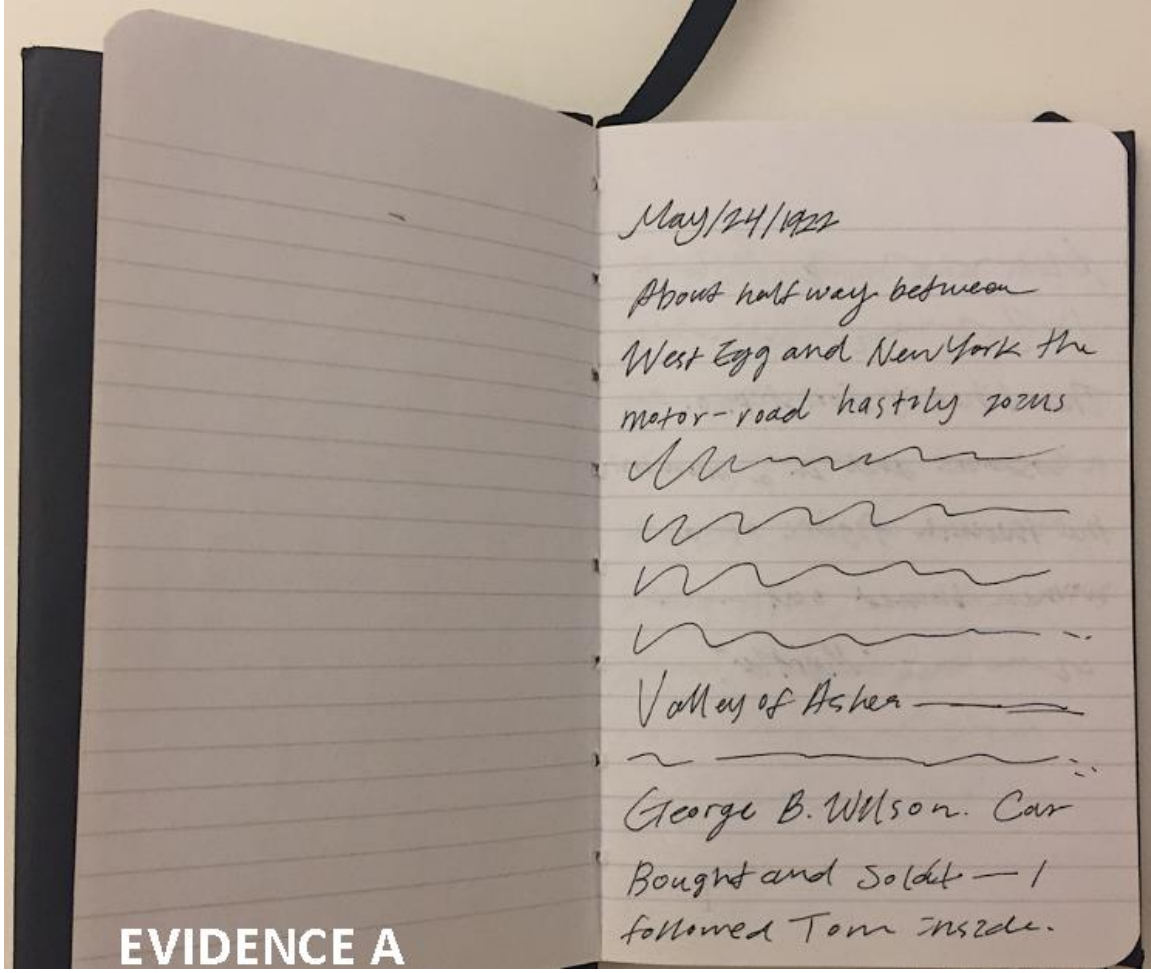 May/24/1922
About half way between
West Egg and New York the
motor-road hastily joins
Valley of Ashes
George B. Wilson. Car
Bought and Sold — I
followed Tom inside.
EVIDENCE A